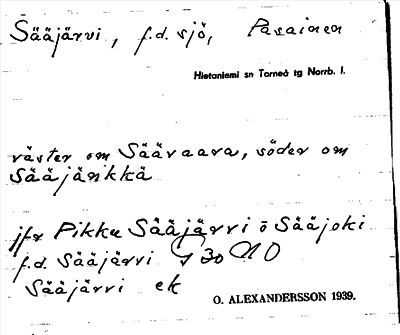 Sääjärvi, f.d. sjö, Pasainen
Hietaniemi sn Torneå tg Norrb. l.
väster om Säävaara, söder om
Sääjänkkä
jfr Pikku Sääjärvi o Sääjoki
f.d. Sääjärvi G 30 A10
Sääjärvi ek
O. ALEXANDERSSON 1939.